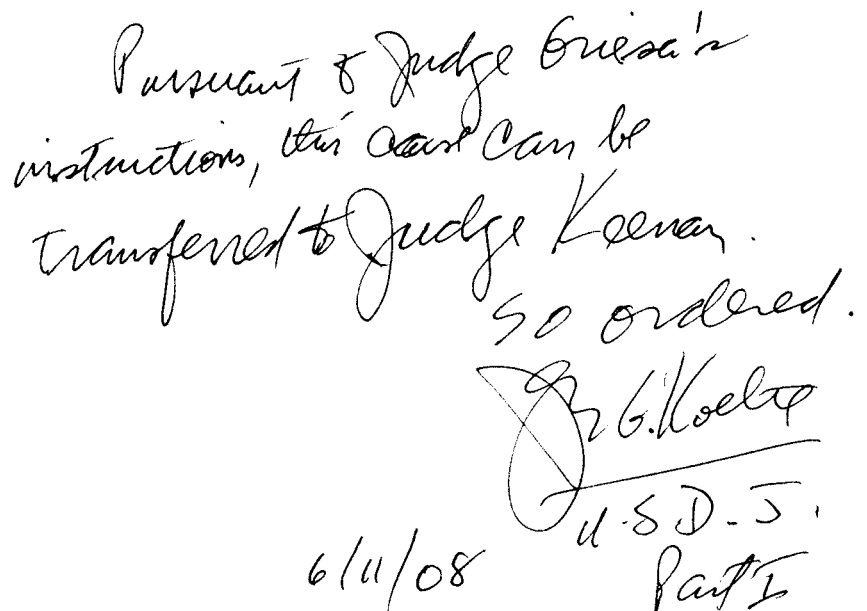 Pursuant to Judge Griesa's
instructions, this case can be
transferred to Judge Keenan.
So ordered.
John G. Koeltl
U.S.D.J.
6/11/08 Part I